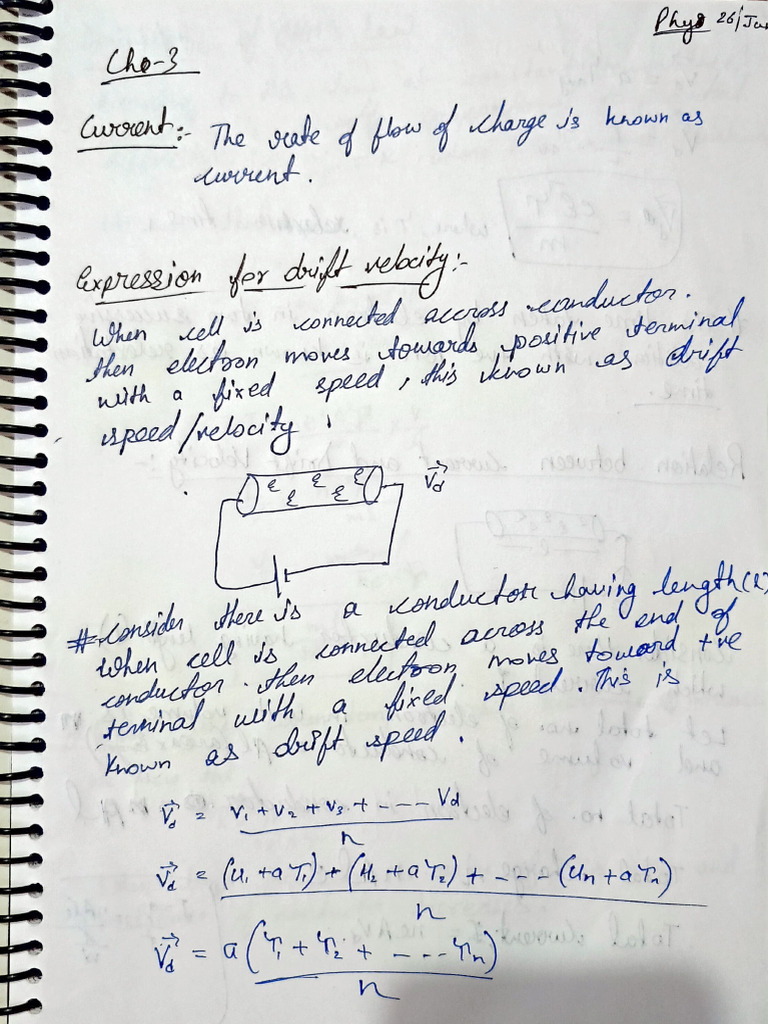 Phys 26/Jan
Ch-3
Current:- The rate of flow of charge is known as
current.
Expression for drift velocity:-
When cell is connected accross conductor.
then electron moves towards positive terminal
with a fixed speed, this known as drift
speed/velocity.
e e e e e
V⃗d
# Consider there is a conductor having length(l)
When cell is connected across the end of
conductor. then electron moves toward +ve
terminal with a fixed speed. This is
known as drift speed.
V⃗d = v1 + v2 + v3 + ---- Vd / n
V⃗d = (u1 + aτ1) + (u2 + aτ2) + --- (un + aτn) / n
V⃗d = a (τ1 + τ2 + ---- τn) / n